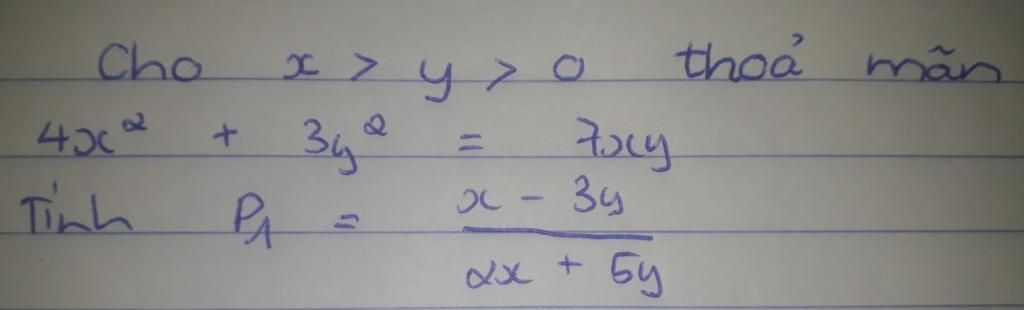 Cho x > y > 0 thoả mãn
4x² + 3y² = 7xy
Tính P₁ = (x - 3y)/(2x + 5y)